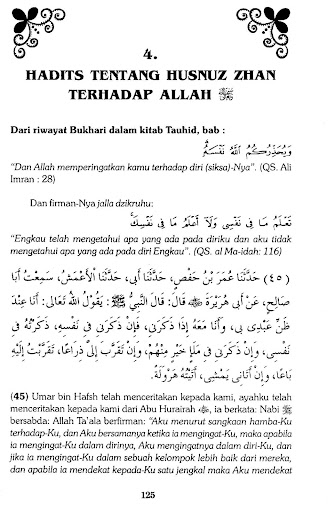 4.
HADITS TENTANG HUSNUZ ZHAN
TERHADAP ALLAH ﷻ
Dari riwayat Bukhari dalam kitab Tauhid, bab :
وَيُحَذِّرُكُمُ اللَّهُ نَفْسَهُ
“Dan Allah memperingatkan kamu terhadap diri (siksa)-Nya”. (QS. Ali
Imran : 28)
Dan firman-Nya jalla dzikruhu:
تَعْلَمُ مَا فِي نَفْسِي وَلَا أَعْلَمُ مَا فِي نَفْسِكَ
“Engkau telah mengetahui apa yang ada pada diriku dan aku tidak
mengetahui apa yang ada pada diri Engkau”. (QS. al Ma-idah: 116)
(٤٥) حَدَّثَنَا عُمَرُ بْنُ حَفْصٍ، حَدَّثَنَا أَبِي، حَدَّثَنَا الْأَعْمَشُ، سَمِعْتُ أَبَا
صَالِحٍ، عَنْ أَبِي هُرَيْرَةَ ﷺ، قَالَ: قَالَ النَّبِيُّ ﷺ: يَقُولُ اللَّهُ تَعَالَى: أَنَا عِنْدَ
ظَنِّ عَبْدِي بِي، وَأَنَا مَعَهُ إِذَا ذَكَرَنِي، فَإِنْ ذَكَرَنِي فِي نَفْسِهِ، ذَكَرْتُهُ فِي
نَفْسِي، وَإِنْ ذَكَرَنِي فِي مَلَإٍ خَيْرٍ مِنْهُمْ، وَإِنْ تَقَرَّبَ إِلَيَّ ذِرَاعًا، تَقَرَّبْتُ إِلَيْهِ
بَاعًا، وَإِنْ أَتَانِي يَمْشِي، أَتَيْتُهُ هَرْوَلَةً.
(45) Umar bin Hafsh telah menceritakan kepada kami, ayahku telah
menceritakan kepada kami dari Abu Hurairah, ia berkata: Nabi ﷺ
bersabda: Allah Ta’ala berfirman: “Aku menurut sangkaan hamba-Ku
terhadap-Ku, dan Aku bersamanya ketika ia mengingat-Ku, maka apabila
ia mengingat-Ku dalam dirinya, Aku mengingatnya dalam diri-Ku, dan
jika ia mengingat-Ku dalam sebuah kelompok lebih baik dari mereka,
dan apabila ia mendekat kepada-Ku satu jengkal maka Aku mendekat
125